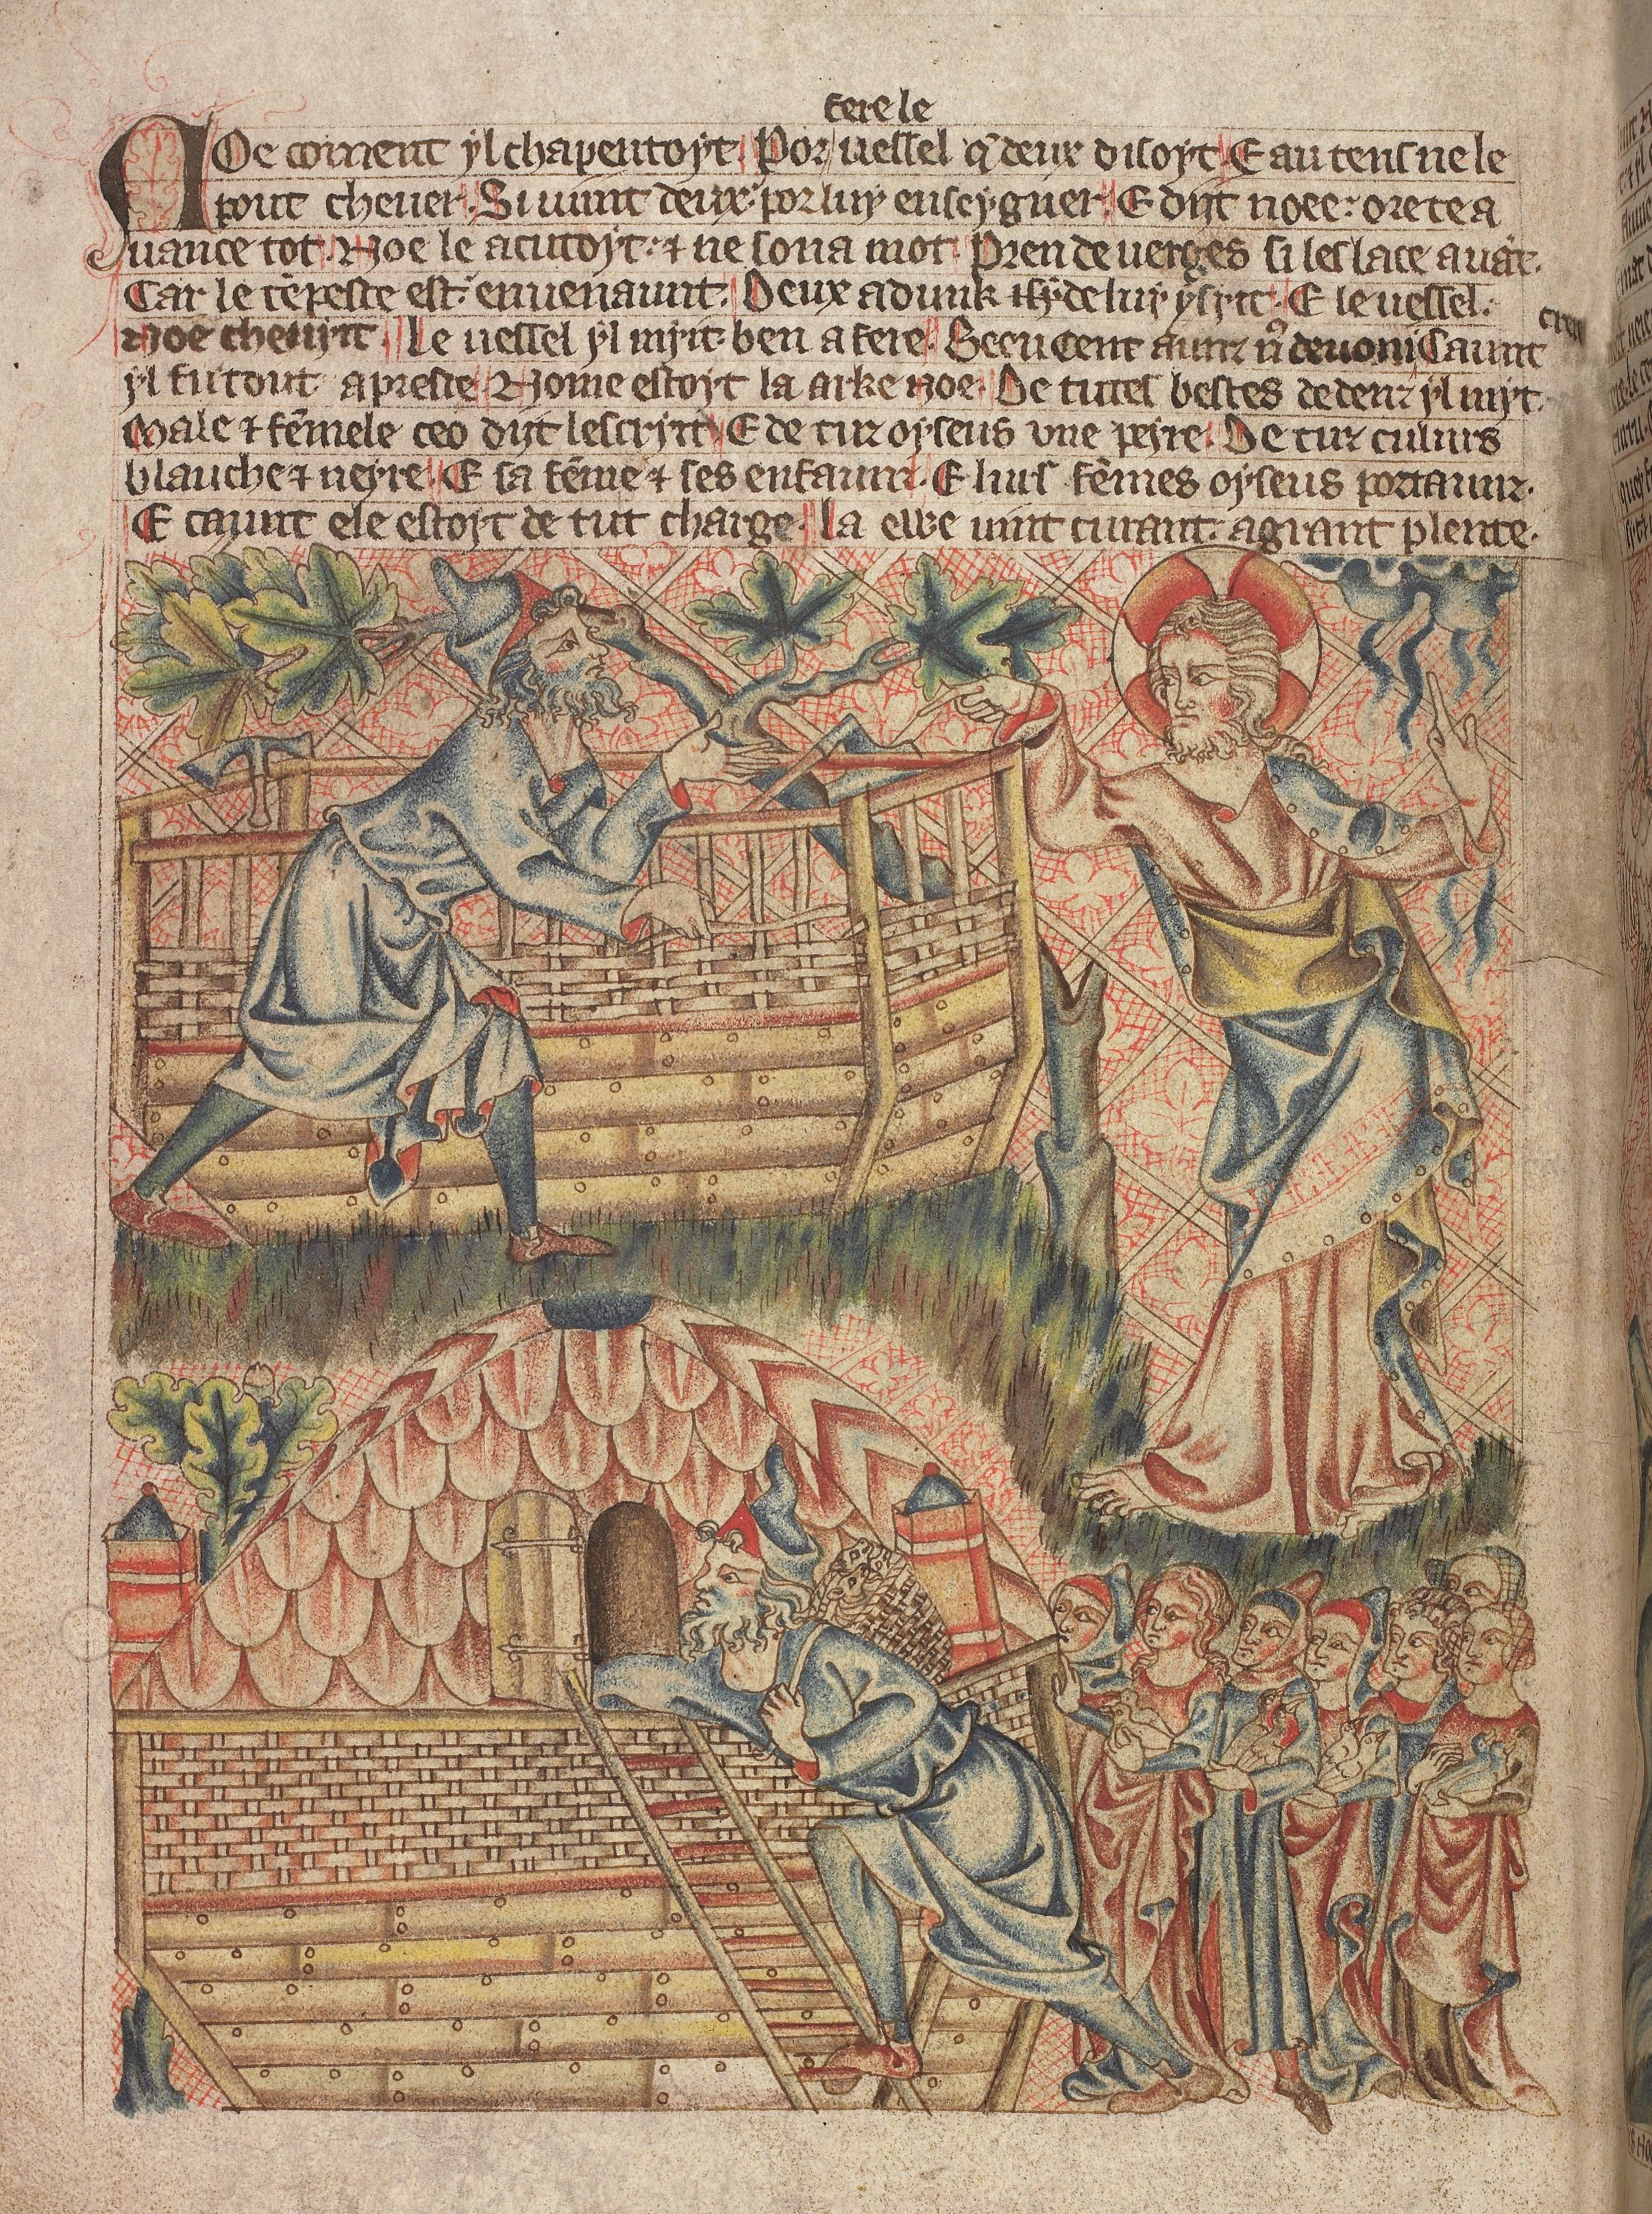 fere le
Noe coment yl chapentoyt. Por uessel q̃ deux disoyt. E au tens ne le
pout cheuer. Si uint deux: por luy enseyguer. E dyt noee: ore te a
uance tot. Noe le acutoyt: ⁊ ne sona mot. Pren de uerges si les lace auãt.
Car le tẽpeste est: enuenaunt. Deux adunk de luy ysyt. E le uessel:
Noe cheuyt. Le uessel yl myt: ben a fere. Caunt
yl fu tout apreste Nome estoyt la arke noe. De tutes bestes dedenz yl myt.
Male ⁊ fẽmele ceo dyt lescryt. E de tuz oyseus une peyre. De tuz culurs
blauche ⁊ neyre. E sa fẽme ⁊ ses enfaunz. E lurs fẽmes oyseus portaunz.
E caunt ele estoyt de tut charge. La ewe uint curant: a grant plente.